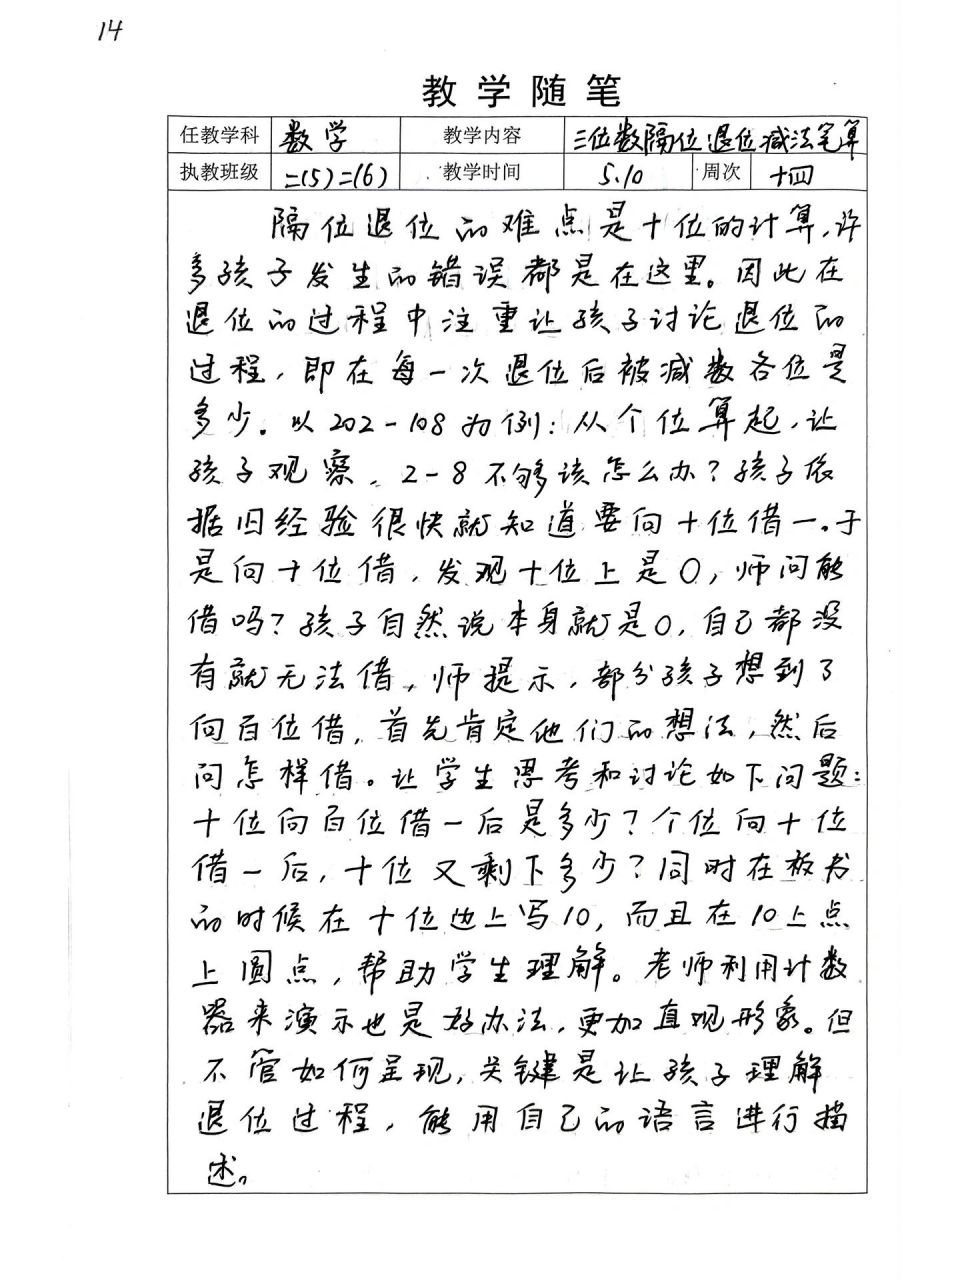 14
教学随笔
任教学科 数学 教学内容 三位数隔位退位减法笔算
执教班级 二(5)二(6) 教学时间 5.10 周次 十四
隔位退位的难点是十位的计算,许
多孩子发生的错误都是在这里。因此在
退位的过程中注重让孩子讨论退位的
过程,即在每一次退位后被减数各位是
多少。以202-108为例:从个位算起,让
孩子观察,2-8不够该怎么办?孩子依
据旧经验很快就知道要向十位借一。于
是向十位借,发现十位上是0,师问能
借吗?孩子自然说本身就是0,自己都没
有就无法借,师提示,部分孩子想到了
向百位借,首先肯定他们的想法,然后
问怎样借。让学生思考和讨论如下问题:
十位向百位借一后是多少?个位向十位
借一后,十位又剩下多少?同时在板书
的时候在十位边上写10,而且在10上点
上圆点,帮助学生理解。老师利用计数
器来演示也是好办法,更加直观形象。但
不管如何呈现,关键是让孩子理解
退位过程,能用自己的语言进行描
述。